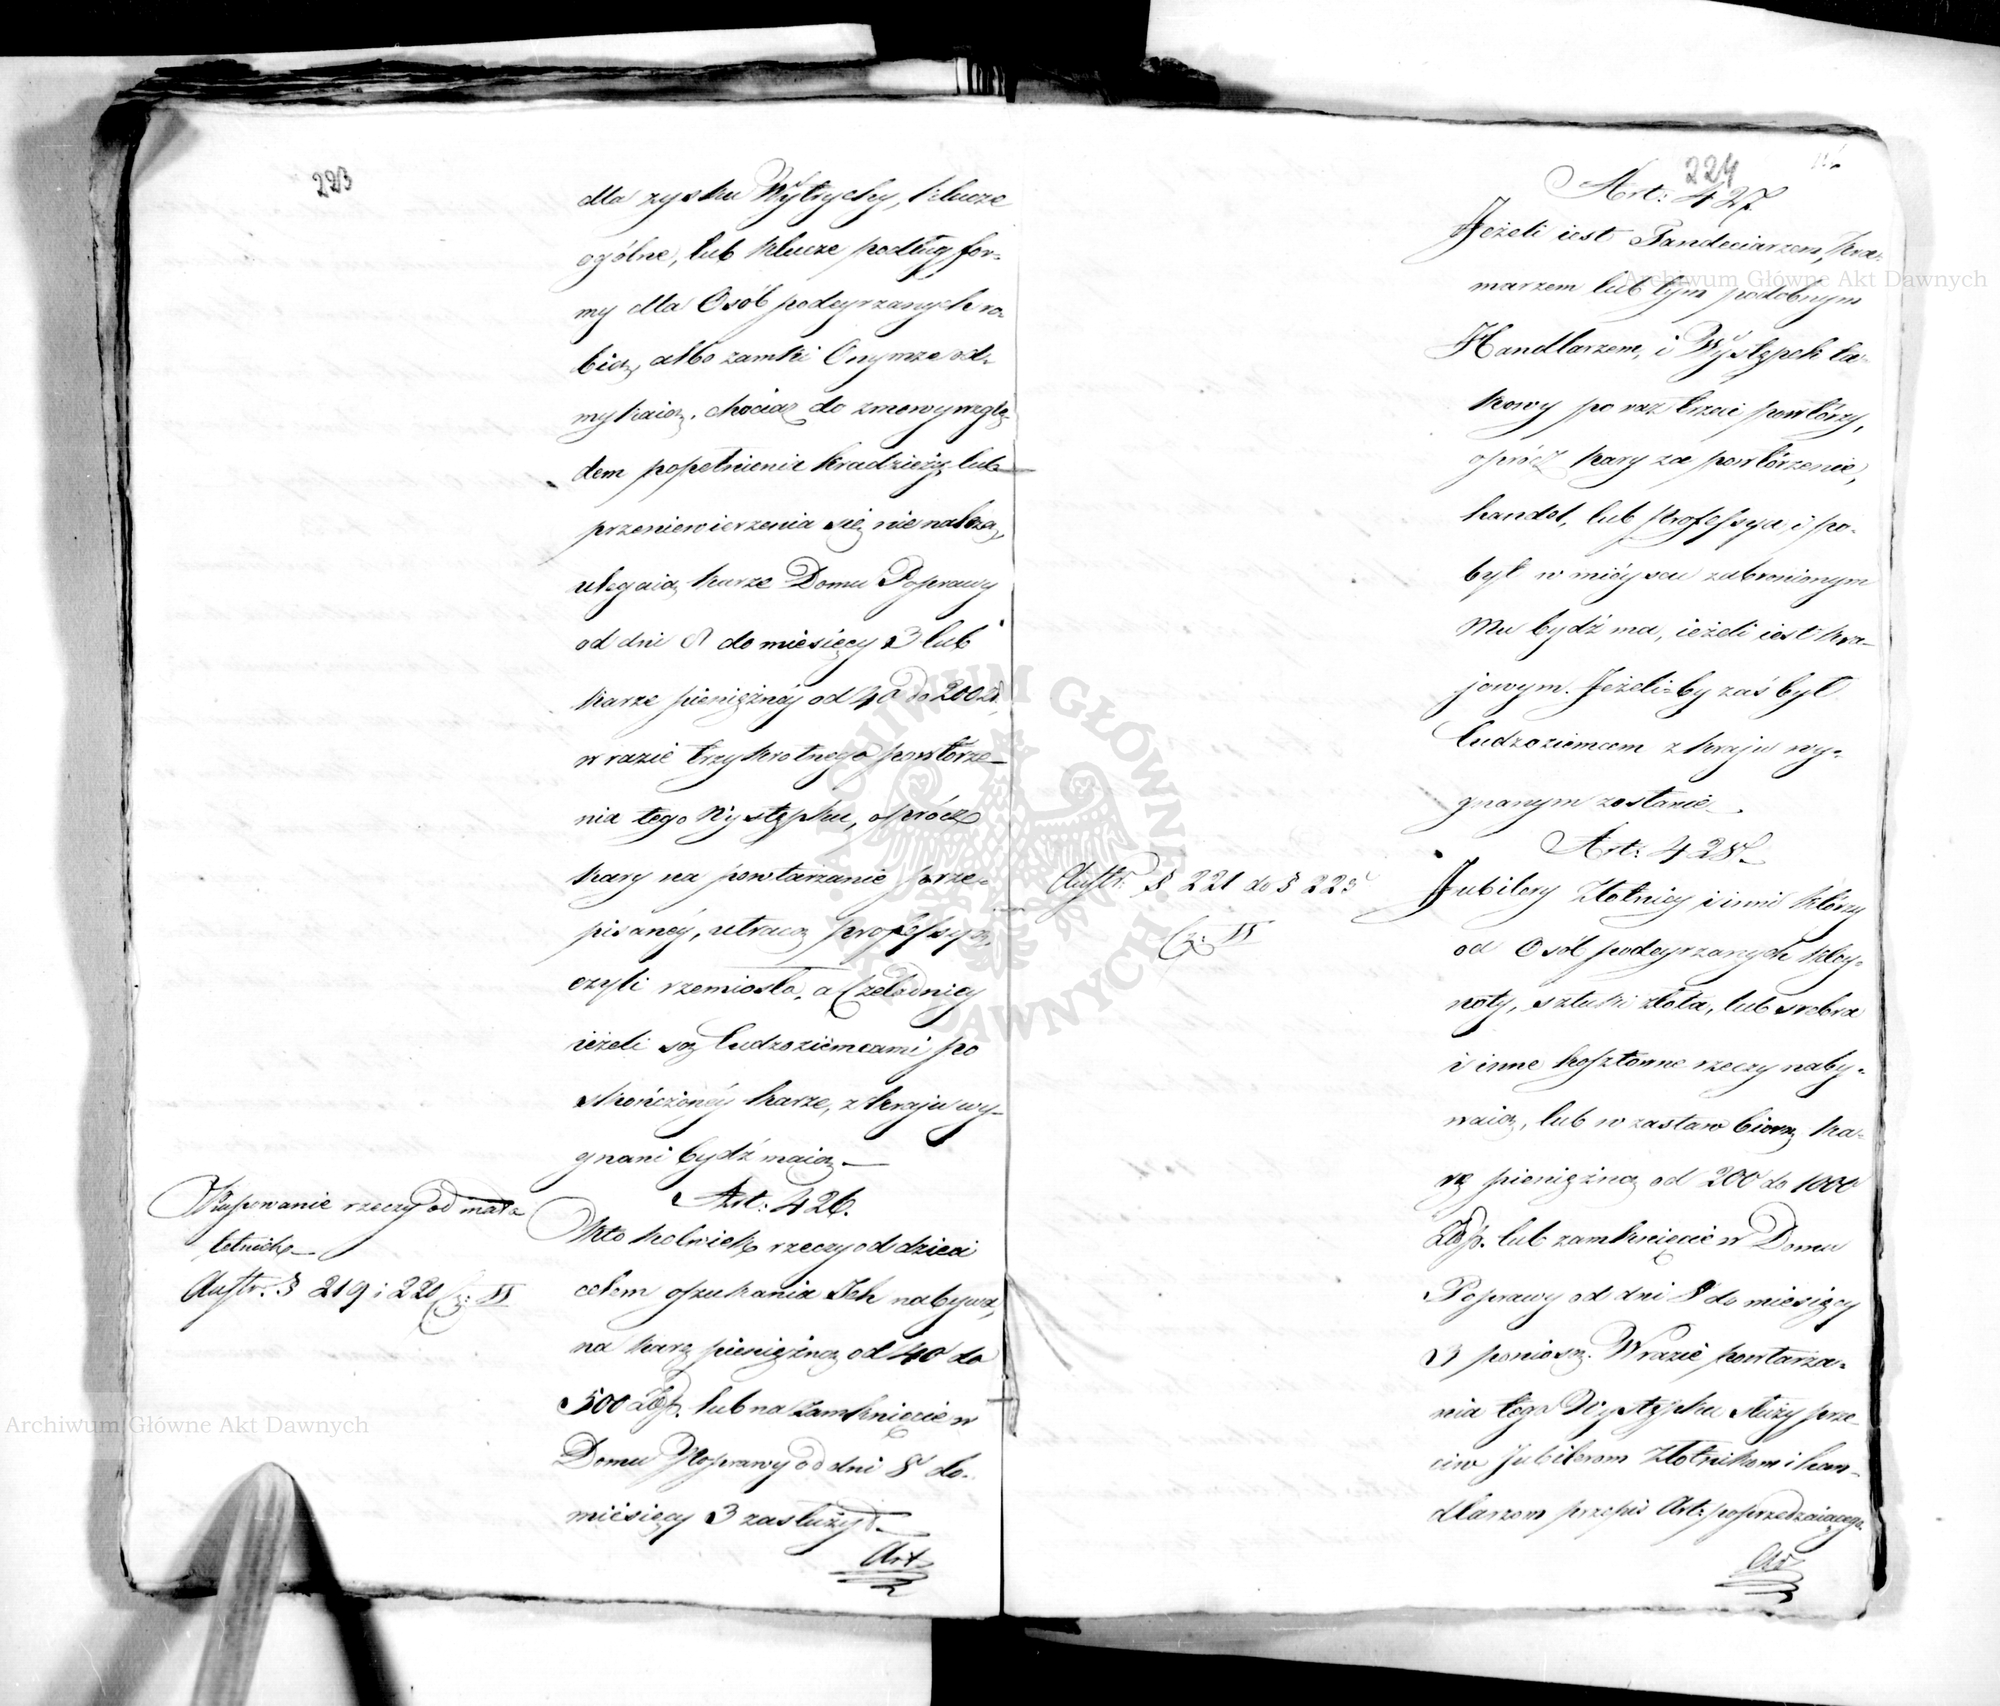 223
dla zysku Wytrychy, klucze
ogólne, lub klucze podług for-
my dla Osób podeyrzanych ro-
bią, albo zamki Onymże od-
mykaią, chociaż do zmowy wzglę-
dem popełnienia kradzieży lub
przeniewierzenia się nie należą,
ulegaią karze Domu Poprawy
od dni 8 do miesięcy 3 lub
karze pieniężnéy od 40 do 200 Zł.
w razie trzykrotnego powtórze-
nia tego Występku, oprócz
kary na powtarzanie prze-
pisanéy, utracą professyą,
czyli rzemiosło, a Czeladnicy
ieżeli są Cudzoziemcami po
skończonéy karze, z kraju wy-
gnani bydź maią.
Art: 426.
Kupowanie rzeczy od mało-
letnich
Austr. § 219 i 220 Cz: II
Ktokolwiek rzeczy od dzieci
celem oszukania Ich nabywa,
na karę pieniężną od 40 do
500 Złp. lub na zamknięcie w
Domu Poprawy od dni 8 do
miesięcy 3 zasłuży.
Art
224
Art: 427.
Jeżeli iest Tandeciarzem, kra-
marzem lub tym podobnym
Handlarzem, i Występek ta-
kowy po raz trzeci powtórzy,
oprócz kary za powtórzenie,
handel, lub professya i po-
byt w miéyscu zabronionym
Mu bydź ma, ieżeli iest kra-
jowym. Jeżeliby zaś był
Cudzoziemcem z kraju wy-
gnanym zostanie.
Art: 428.
Austr. § 221 do § 225
Cz: II
Jubilery Złotnicy i inni którzy
od Osób podeyrzanych kley-
noty, sztuki złota, lub srebra
i inne kosztowne rzeczy naby-
waią, lub w zastaw biorą ka-
rę pieniężną od 200 do 1000
Złp. lub zamknięcie w Domu
Poprawy od dni 8 do miesięcy
3 poniosą. W razie powtarza-
nia tego Występku służy prze-
ciw Jubilerom Złotnikom i han-
dlarzom przepis Art: poprzedzaiącego.
Art
Archiwum Główne Akt Dawnych
Archiwum Główne Akt Dawnych
ARCHIWUM GŁÓWNE AKT DAWNYCH